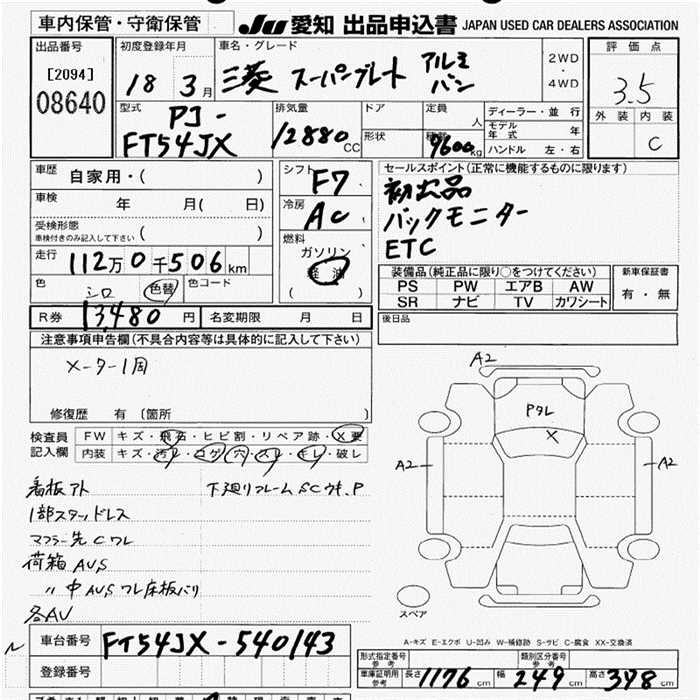 車内保管・守衛保管 JU 愛知 出品申込書 JAPAN USED CAR DEALERS ASSOCIATION
出品番号 [2094] 08640
初度登録年月 18 3月
車名・グレード 三菱 スーパーグレート アルミバン
2WD・4WD
評価点 3.5
外装 内装 C
型式 PJ-FT54JX
排気量 12880 CC
ドア 形状
定員 人
積載 9600 kg
ディーラー・並行
モデル年式 年
ハンドル 左・右
車歴 自家用・( )
車検 年 月( 日)
受検形態 車検付きのみ記入して下さい ( )
走行 112万0千506km
色 シロ 色替 色コード
シフト F7
冷房 AC
燃料 ガソリン 軽油 ( )
セールスポイント(正常に機能するものに限ります)
初出品
バックモニター
ETC
装備品(純正品に限り〇をつけてください)
PS PW エアB AW
SR ナビ TV カワシート
新車保証書 有・無
R券 13,480円 名変期限 月 日
後日品
注意事項申告欄(不具合内容等は具体的に記入して下さい)
メーター1周
修復歴 有 (箇所 )
検査員記入欄
FW キズ・飛石・ヒビ割・リペア跡・X要
内装 キズ・汚れ・コゲ・穴・スレ・キレ・破レ
看板アト 下廻りフレームSCサキ、P
1部スタッドレス
マフラー先Cワレ
荷箱AUS
〃中AUSワレ床板バリ
各AU
A2
Pタレ
X
A2
A2
スペア
A-キズ E-エクボ U-凹み W-補修跡 S-サビ C-腐食 XX-交換済
車台番号 FT54JX-540143
登録番号
形式指定番号 参考 類別区分番号 参考
車庫証明用 参考 長さ 1176cm 幅 249cm 高さ 378cm